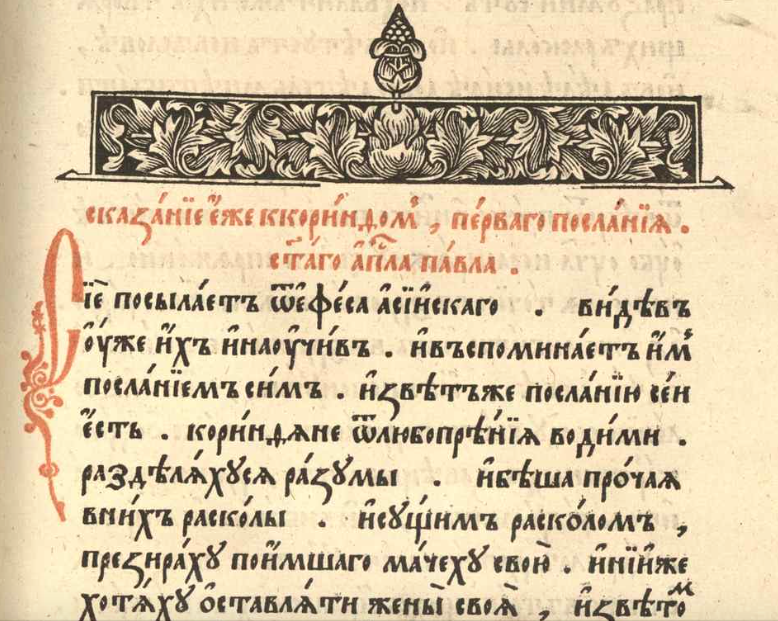 сказа́нїе є҆́же ккори́нѳомꙿ, пе́рваго посла́нїѧ.
ст҃а́го а҆пⷭ҇ла па́вла.
Сїѐ посыла́етъ ѿєфе́са а҆сі́йскаго. ви́дѣвъ
ѹ҆́же и҆́хъ и҆наѹчи́въ. и҆въспомина́етъ и҆́мꙿ
посла́нїемъ си́мъ. и҆звѣ́тъже посла́нїю се́й
є҆́сть. кори́нѳѧне ѿлюбопрѣ́нїѧ води́ми.
раздѣлѧ́хꙋсѧ ра́зꙋмы. и҆бѣ́ша про́чаѧ
вни́хъ раско́лы. и҆сꙋ́щимъ раско́ломъ,
презира́хꙋ пои҆́мшаго ма́чехꙋ свою̀. и҆ні́и҆же
хотѧ́хꙋ ѻ҆ставлѧ́ти жены̀ своѧ̀, и҆звѣ́тоⷨ